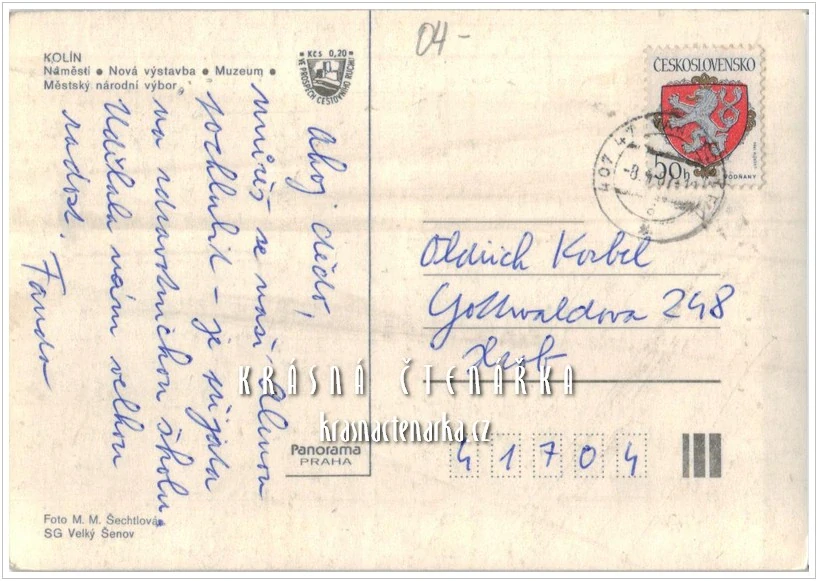 04-
KOLÍN
Náměstí • Nová výstavba • Muzeum •
Městský národní výbor
Kčs 0,20
VE PROSPĚCH CESTOVNÍHO RUCHU
ČESKOSLOVENSKO
50h
VODŇANY
407 47
-8.
Ahoj dědo,
můžeš se naší Alenou
pochlubit - je přijata
na zdravotnickou školu.
Udělala nám velkou
radost.
Fanda
Oldřich Korbel
Gottwaldova 248
Hrob
KRÁSNÁ ČTENÁŘKA
krasnactenarka.cz
Panorama
PRAHA
41704
Foto M. M. Šechtlová
SG Velký Šenov